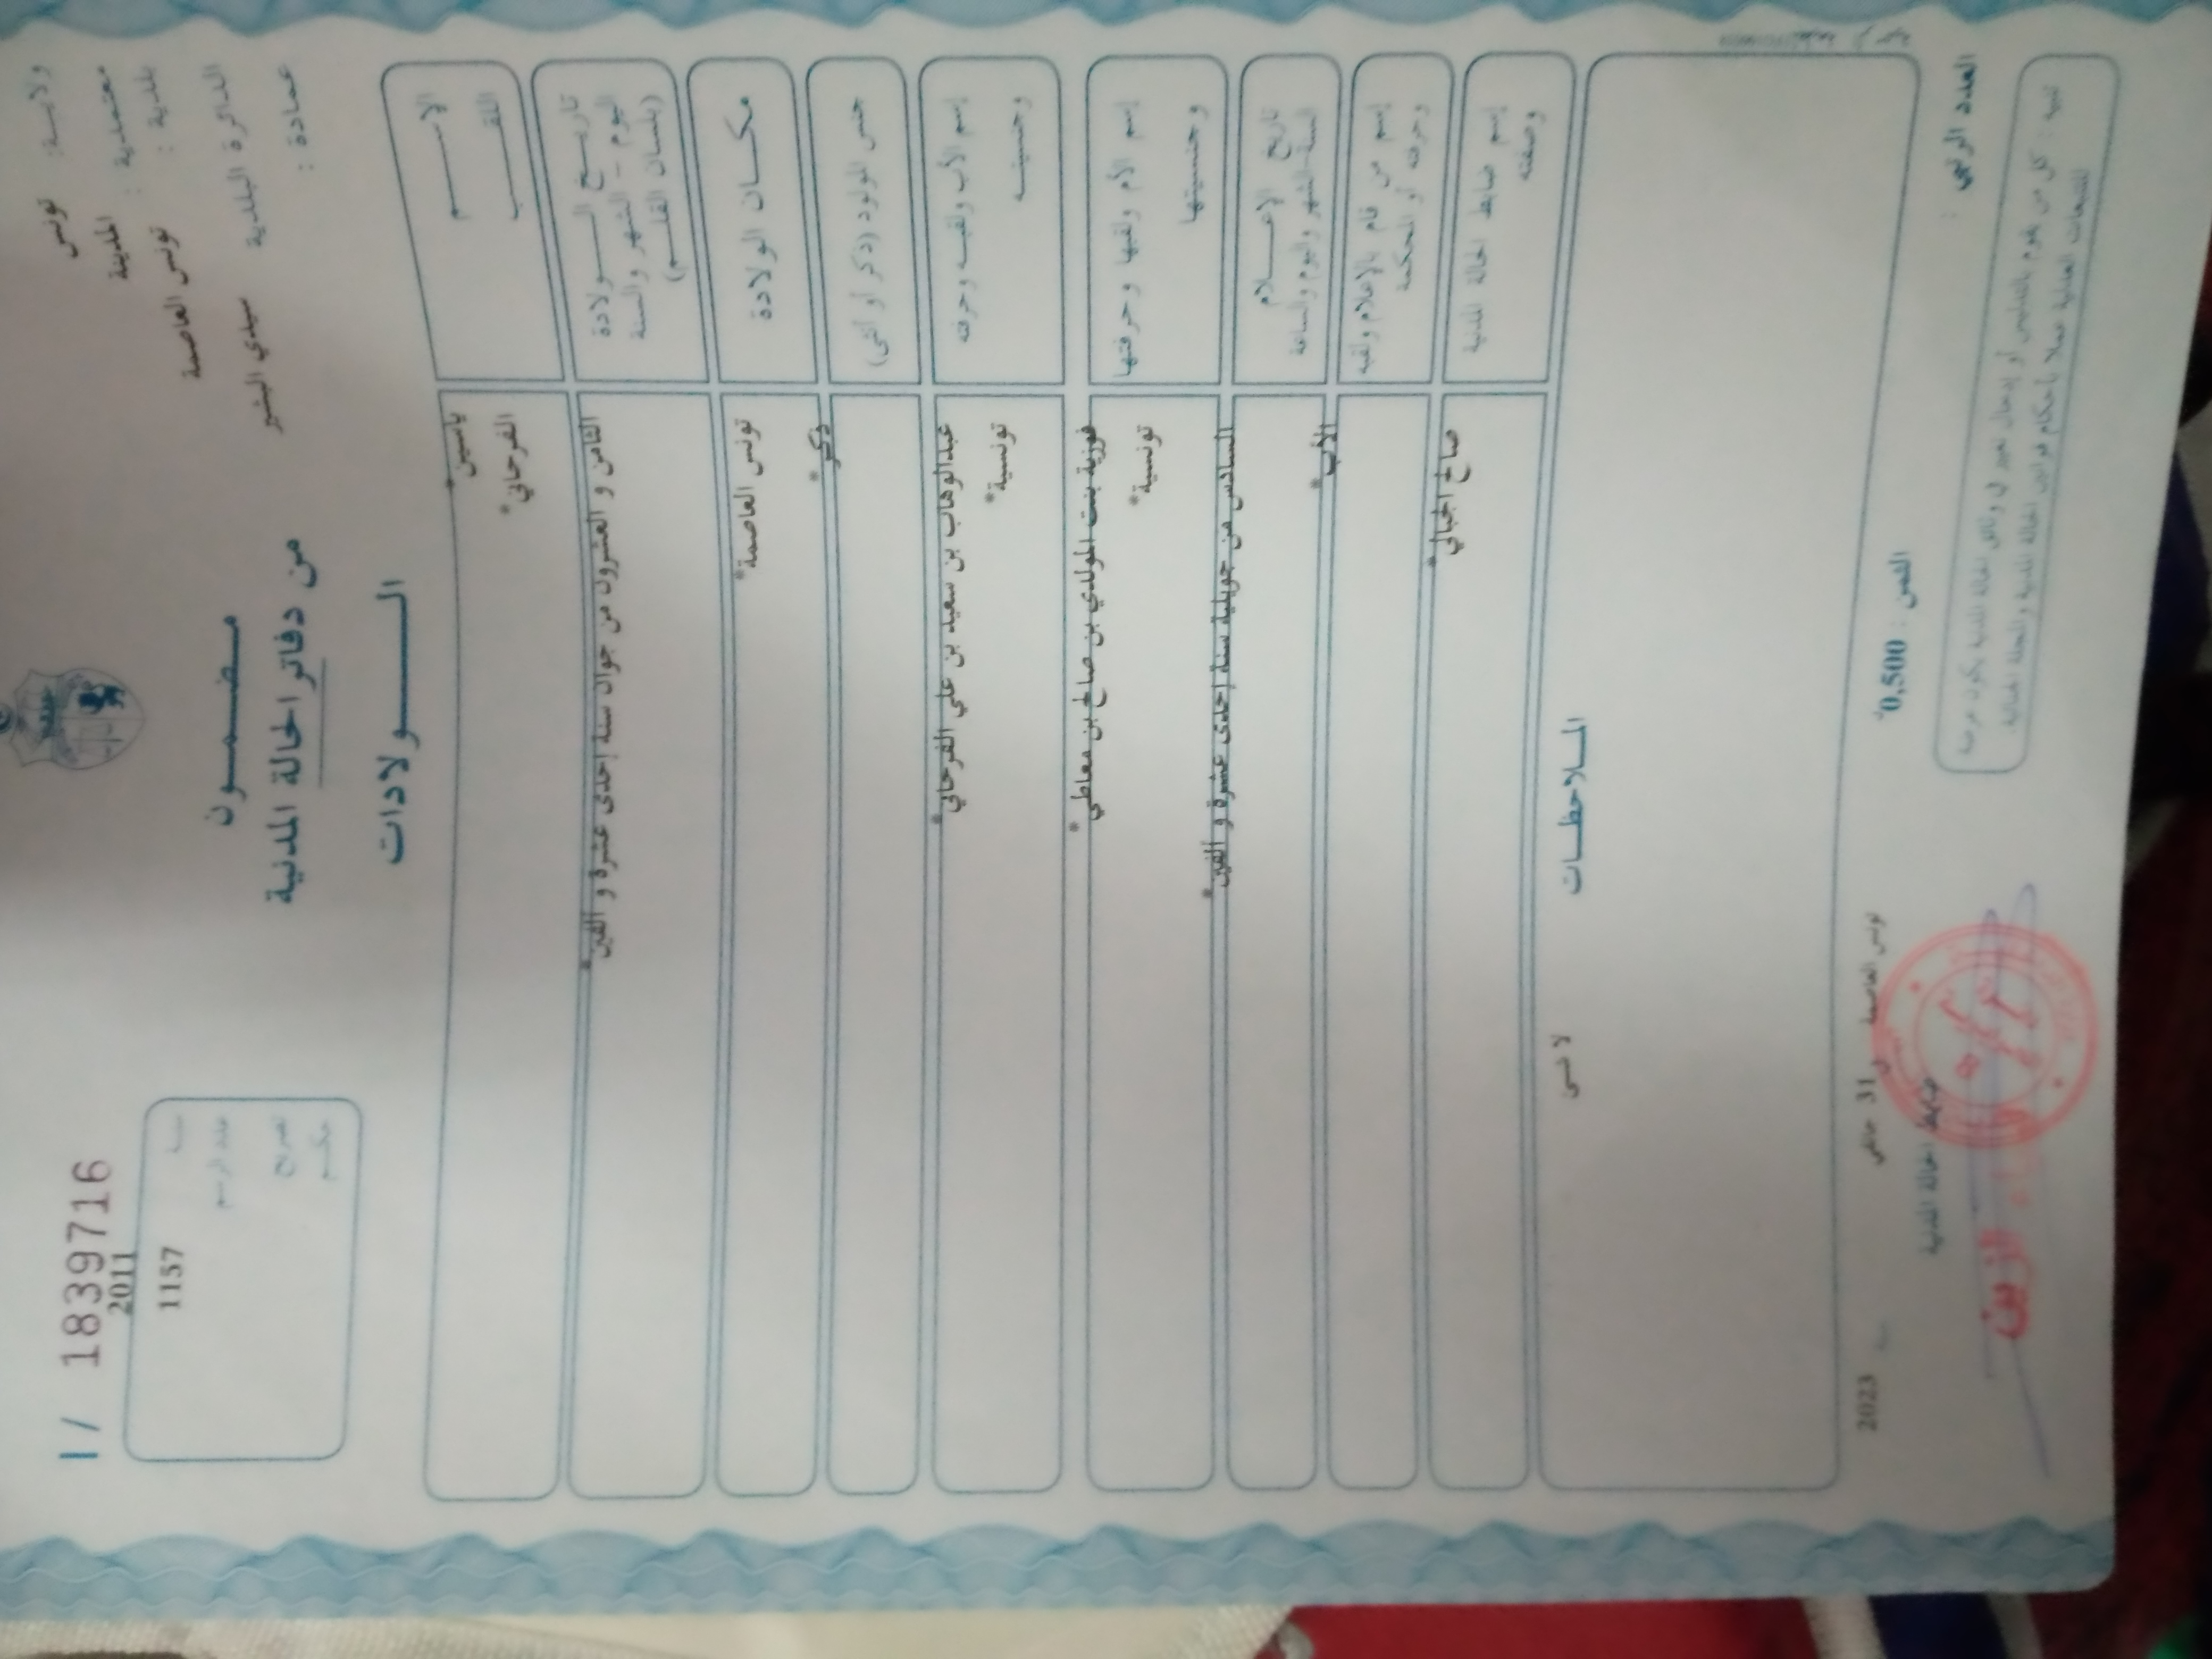 ولايـــة: تونس
معتمدية : المدينة
بلدية : تونس العاصمة
الدائرة البلدية سيدي البشير
عمادة :
I / 1839716
2011
سنة
1157
عدد الرسم
تصريح
حكم
مـضـمـــون
من دفاتر الحالة المدنية
الـــــولادات
الإســــــم
ياسين*
اللقـــــــب
الفرحاني*
تاريـــخ الــــــولادة
اليوم - الشهر والسنة
(بلسان القلـــم)
الثامن و العشرون من جوان سنة إحدى عشرة و ألفين*
مكــان الولادة
تونس العاصمة*
جنس المولود (ذكر أو أنثى)
ذكر*
إسم الأب ولقبـــه وحرفته
عبدالوهاب بن سعيد بن علي الفرحاني*
وجنسيتـــه
تونسية*
إسم الأم ولقبها وحرفتها
فوزية بنت المولدي بن صالح بن معاطي*
وجنسيتها
تونسية*
تاريخ الإعـــلام
السنة-الشهر واليوم والساعة
السادس من جويلية سنة إحدى عشرة و ألفين*
إسم من قام بالإعلام ولقبه
وحرفته أو المحكمة
الأب*
إسم ضابط الحالة المدنية
وصفته
صالح الجبالي*
المــلاحظــات
لا شيء
تونس العاصمة في 31 جانفي 2023
ضابط الحالة المدنية
الثمن : 0,500د
العدد الرتبي :
تنبيه : كل من يقوم بالتدليس أو إدخال تغيير في وثائق الحالة المدنية يكون عرضة
للتبعات العدلية عملا بأحكام قوانين الحالة المدنية والمجلة الجنائية.
الزين